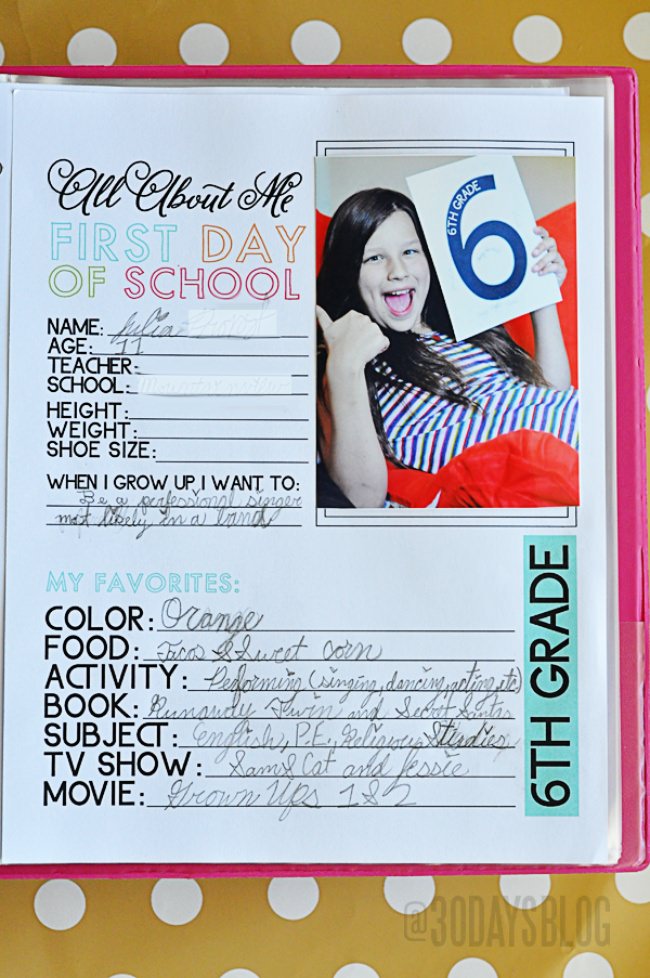 All About Me
FIRST DAY
OF SCHOOL
NAME: Julia
AGE: 11
TEACHER:
SCHOOL:
HEIGHT:
WEIGHT:
SHOE SIZE:
WHEN I GROW UP, I WANT TO:
Be a professional singer
most likely in a band
6TH GRADE
6
MY FAVORITES:
COLOR: Orange
FOOD: Tacos & Sweet corn
ACTIVITY: Performing (singing, dancing, acting, etc)
BOOK: Runaway Twin and Secret
SUBJECT: English, P.E., Religious Studies
TV SHOW: Sam & Cat and Jessie
MOVIE: Grown Ups 1 & 2
6TH GRADE
@30DAYSBLOG